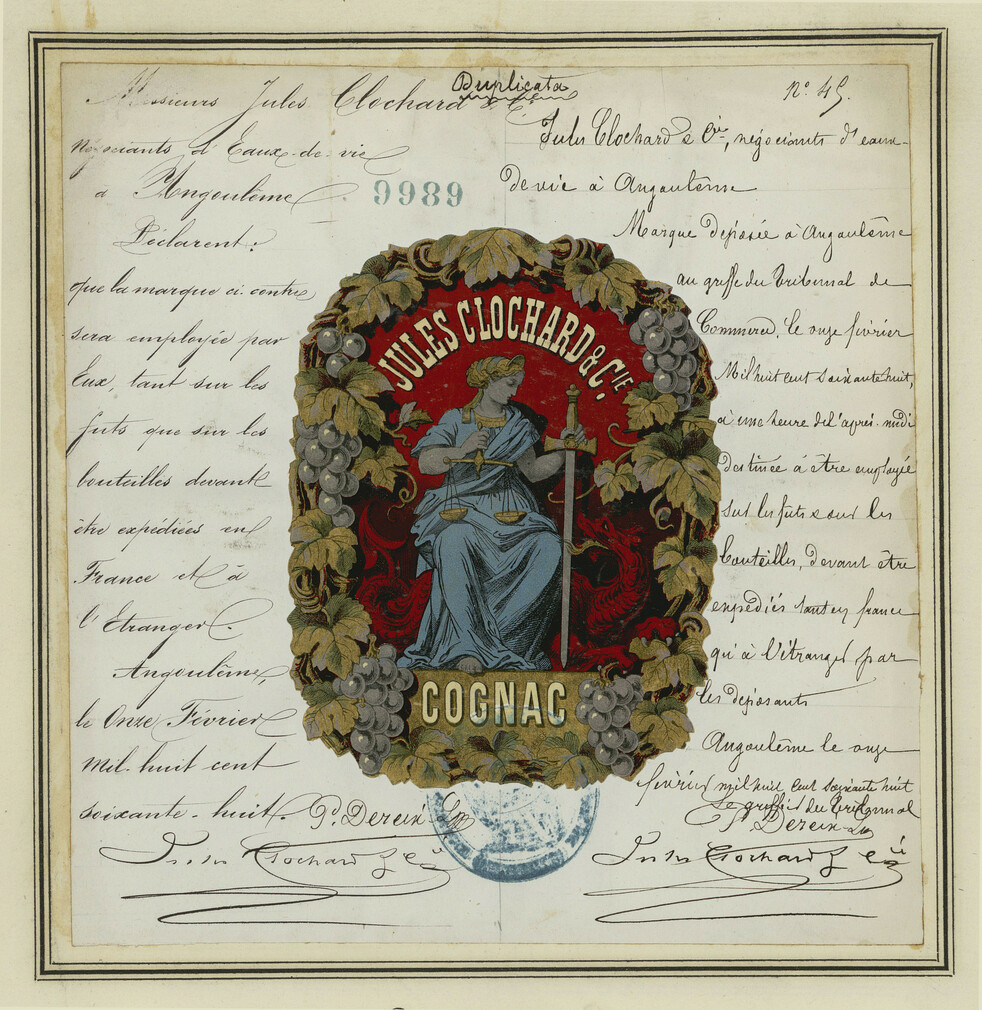 Duplicata
N° 45.
Messieurs Jules Clochard & Cie
négociants d'Eaux-de-vie
à Angoulême
Déclarent:
que la marque ci-contre
sera employée par
Eux, tant sur les
futs que sur les
bouteilles devant
être expédiées en
France et à
l'Etranger.
Angoulême,
le Onze Février
mil-huit cent
soixante-huit.
Jules Clochard & Cie
9989
JULES CLOCHARD & CIE.
COGNAC
Jules Clochard & Cie, négociants d'eaux-
de vie à Angoulême
Marque déposée à Angoulême
au greffe du Tribunal de
Commerce, le onze février
Mil huit cent soixante huit,
à une heure de l'après-midi
destinée à être employée
sur les futs & sur les
bouteilles, devant être
expédiés tant en france
qu'à l'étranger par
les déposants
Angoulême le onze
février mil huit cent soixante huit
Le greffier du Tribunal
Jules Clochard & Cie